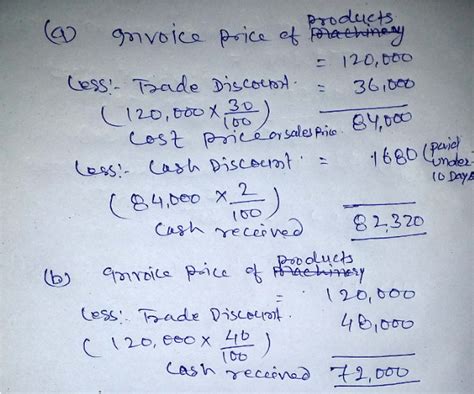 (a) Invoice price of products machinery
= 120,000
Less:- Trade Discount. = 36,000
(120,000 x 30/100)
Cost price or sales price. 84,000
Less:- Cash Discount. = 1680 (paid under 10 Days
(84,000 x 2/100)
Cash received 82,320
(b) Invoice price of products machinery
= 120,000
Less:- Trade Discount. 48,000
(120,000 x 40/100)
Cash received 72,000